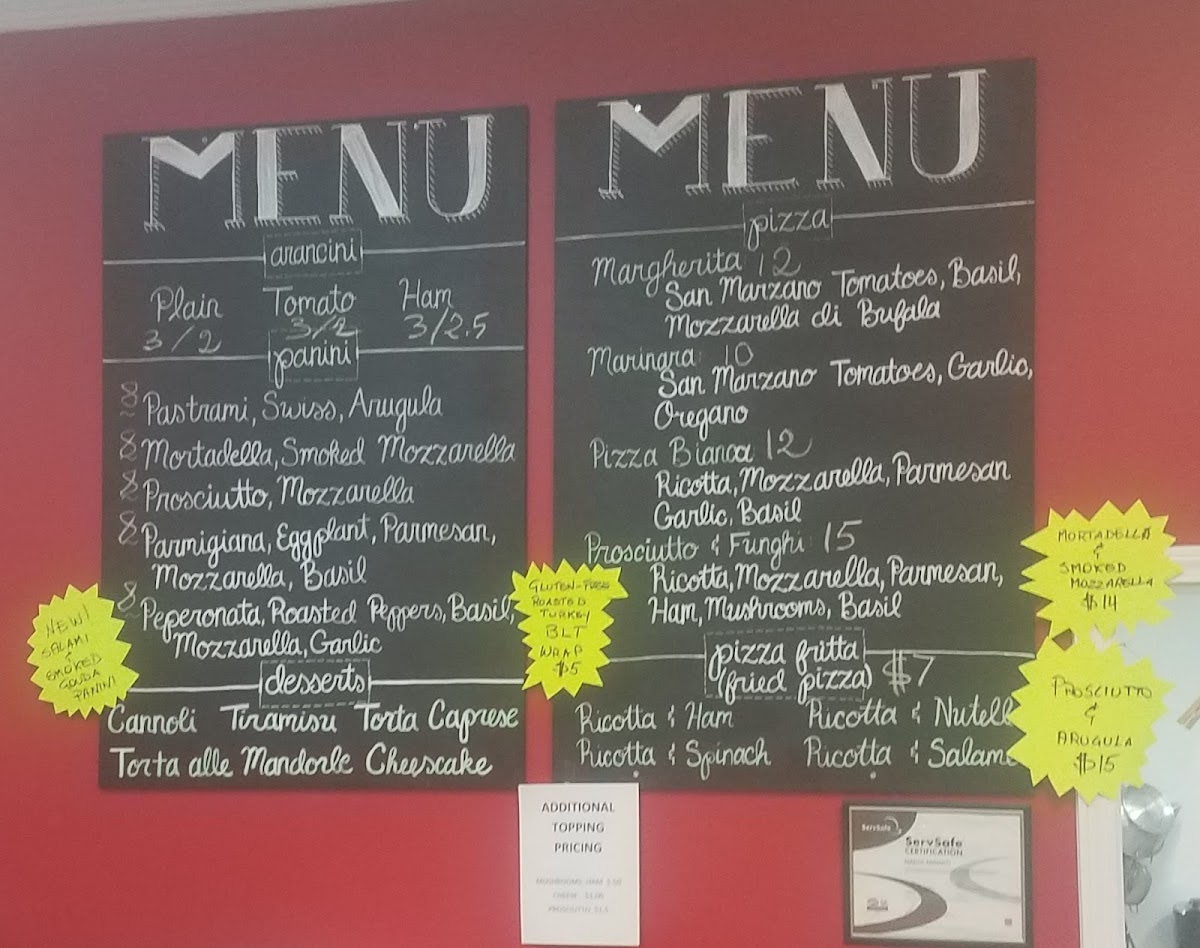 MENU
arancini
Plain Tomato Ham
3/2 3/2 3/2.5
panini
8 Pastrami, Swiss, Arugula
8 Mortadella, Smoked Mozzarella
8 Prosciutto, Mozzarella
8 Parmigiana, Eggplant, Parmesan,
Mozzarella, Basil
8 Peperonata, Roasted Peppers, Basil,
Mozzarella, Garlic
desserts
Cannoli Tiramisu Torta Caprese
Torta alle Mandorle Cheescake
NEW!
SALAMI
SMOKED
GOUDA
PANINI
GLUTEN-FREE
ROASTED
TURKEY
BLT
WRAP
$5
MENU
pizza
Margherita 12
San Marzano Tomatoes, Basil,
Mozzarella di Bufala
Marinara 10
San Marzano Tomatoes, Garlic,
Oregano
Pizza Bianca 12
Ricotta, Mozzarella, Parmesan
Garlic, Basil
Prosciutto & Funghi 15
Ricotta, Mozzarella, Parmesan,
Ham, Mushrooms, Basil
pizza fritta
(fried pizza) $7
Ricotta & Ham Ricotta & Nutell
Ricotta & Spinach Ricotta & Salame
MORTADELLA
&
SMOKED
MOZZARELLA
$14
PROSCIUTTO
&
ARUGULA
$15
ADDITIONAL
TOPPING
PRICING
ServSafe
ServSafe
CERTIFICATION